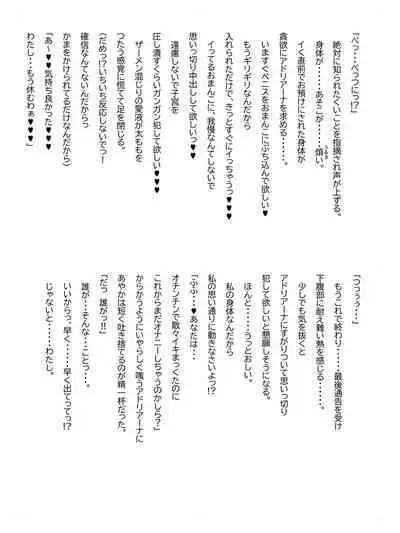 「べっ・・・べつにっ!?」
絶対に知られたくいことを指摘され声が上ずる。
身体が・・・・あそこが・・・・・煩い。
いく直前でお預けにされた身体が
貪欲にアドリアーナを求める・・・・・・。
いますぐペニスをおまんこにぶち込んで欲しい♥
もうギリギリなんだから
入れられただけで、きっとすぐにイっちゃうっ♥♥
イってるおまんこに、我慢なんてしないで
思いっ切り中出しして欲しいっ♥
遠慮しないで子宮を
圧し潰すくらいガンガン犯して欲しい♥♥
ザーメン混じりの愛液が太ももを
つたう感覚に慌てて足を閉じる。
(だめっ!?いちいち反応しないでっ!
確信なんてないんだからっ
かまをかけられてるだけなんだから)
「あ〜♥♥気持ち良かった♥♥♥
わたし・・・もう休むわぁ♥♥♥」
「つつぅぅ・・・・」
もうこれで終わり・・・・・・最後通告を受け
下腹部に耐え難い熱を感じる・・・・・。
少しでも気を抜くと
アドリアーナにすがりついて思いっ切り
犯して欲しいと懇願しそうになる。
ほんと・・・・・うっとおしい。
私の身体なんだから
私の思い通りに動きなさいよっ!?
「ふふ・・・♥あなたは・・・
オチンチンで散々イキまくったのに
これからまだオナニーしちゃうのかしら?」
からかうようにいやらしく嗤うアドリアーナに
あやかは短く吐き捨てるのが精一杯だった。
「だっ 誰がっ!?
誰が・・・そんな・・・ことっ・・・・
いいからっ、早く・・・・早く出てってっ!?
じゃないと・・・・わたし。